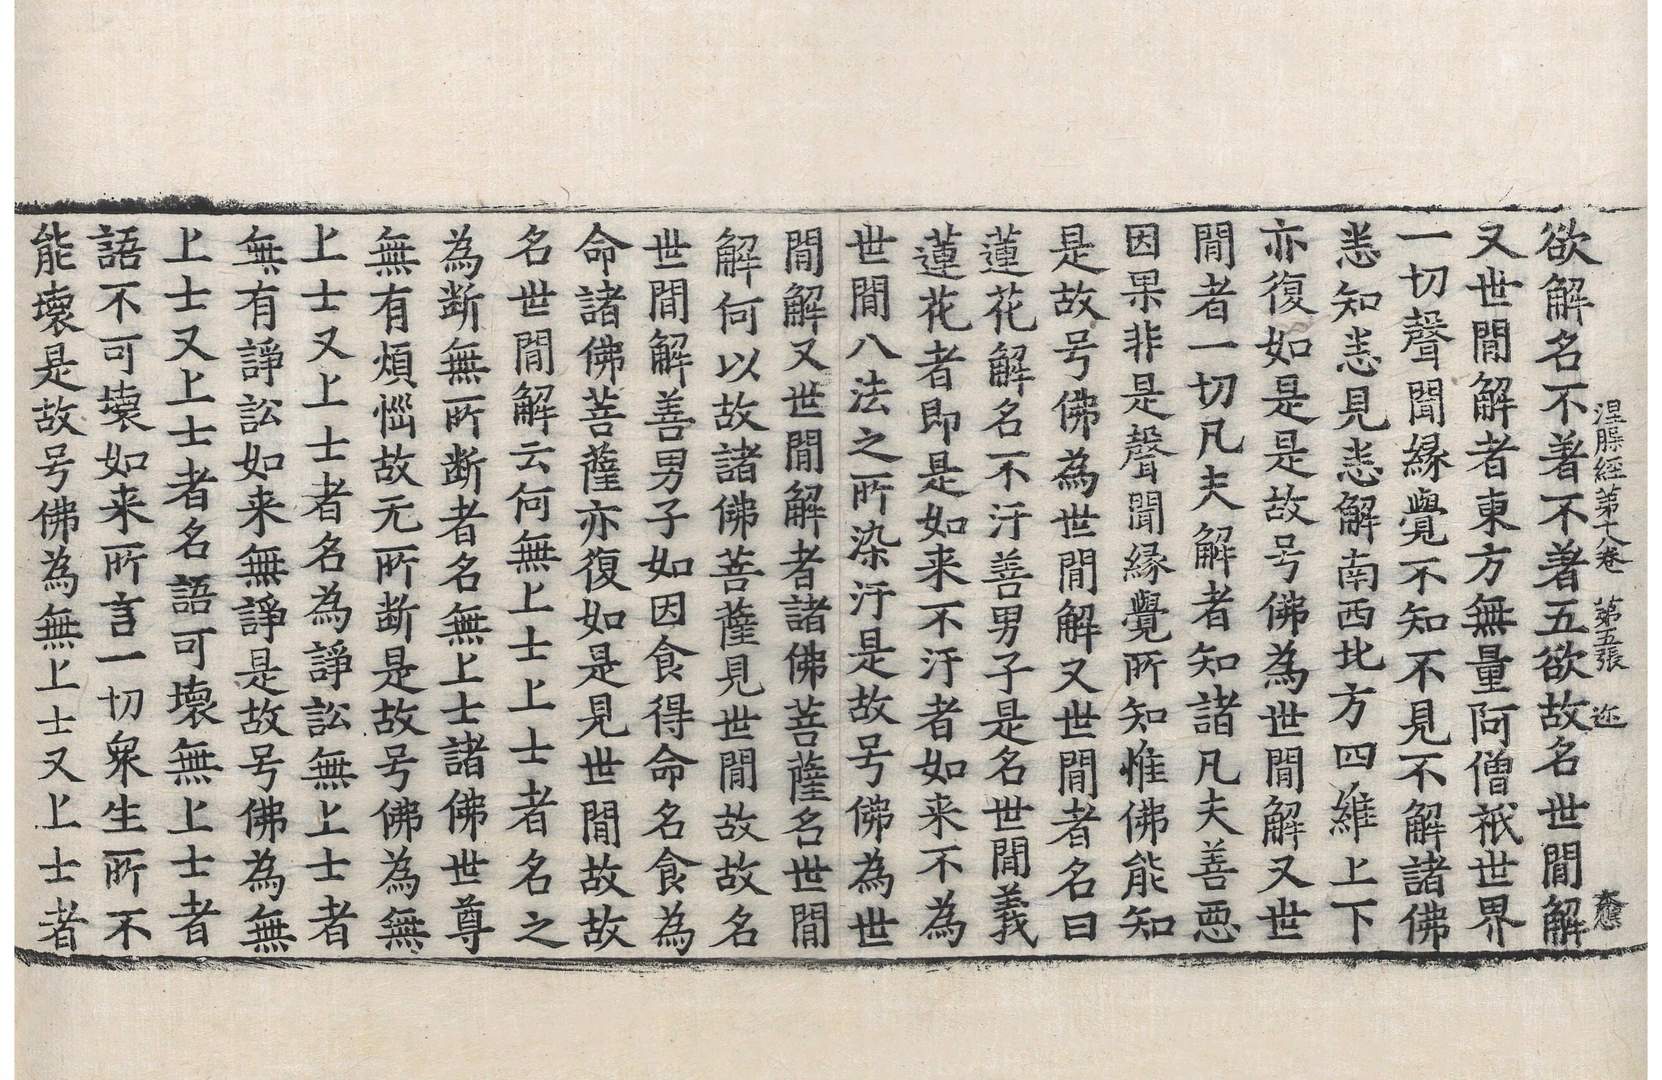 涅槃經第十八卷　第五張　迩
欲解名不著不著五欲故名世間解
又世間解者東方無量阿僧祇世界
一切聲聞緣覺不知不見不解諸佛
悉知悉見悉解南西北方四維上下
亦復如是是故号佛為世間解又世
間者一切凡夫解者知諸凡夫善惡
因果非是聲聞緣覺所知惟佛能知
是故号佛為世間解又世間者名曰
蓮花解名不汙善男子是名世間義
蓮花者即是如来不汙者如来不為
世間八法之所染汙是故号佛為世
間解又世間解者諸佛菩薩名世間
解何以故諸佛菩薩見世間故故名
世間解善男子如因食得命名食為
命諸佛菩薩亦復如是見世間故故
名世間解云何無上士上士者名之
為断無所断者名無上士諸佛世尊
無有煩惱故无所断是故号佛為無
上士又上士者名為諍訟無上士者
無有諍訟如来無諍是故号佛為無
上士又上士者名語可壞無上士者
語不可壞如来所言一切衆生所不
能壞是故号佛為無上士又上士者